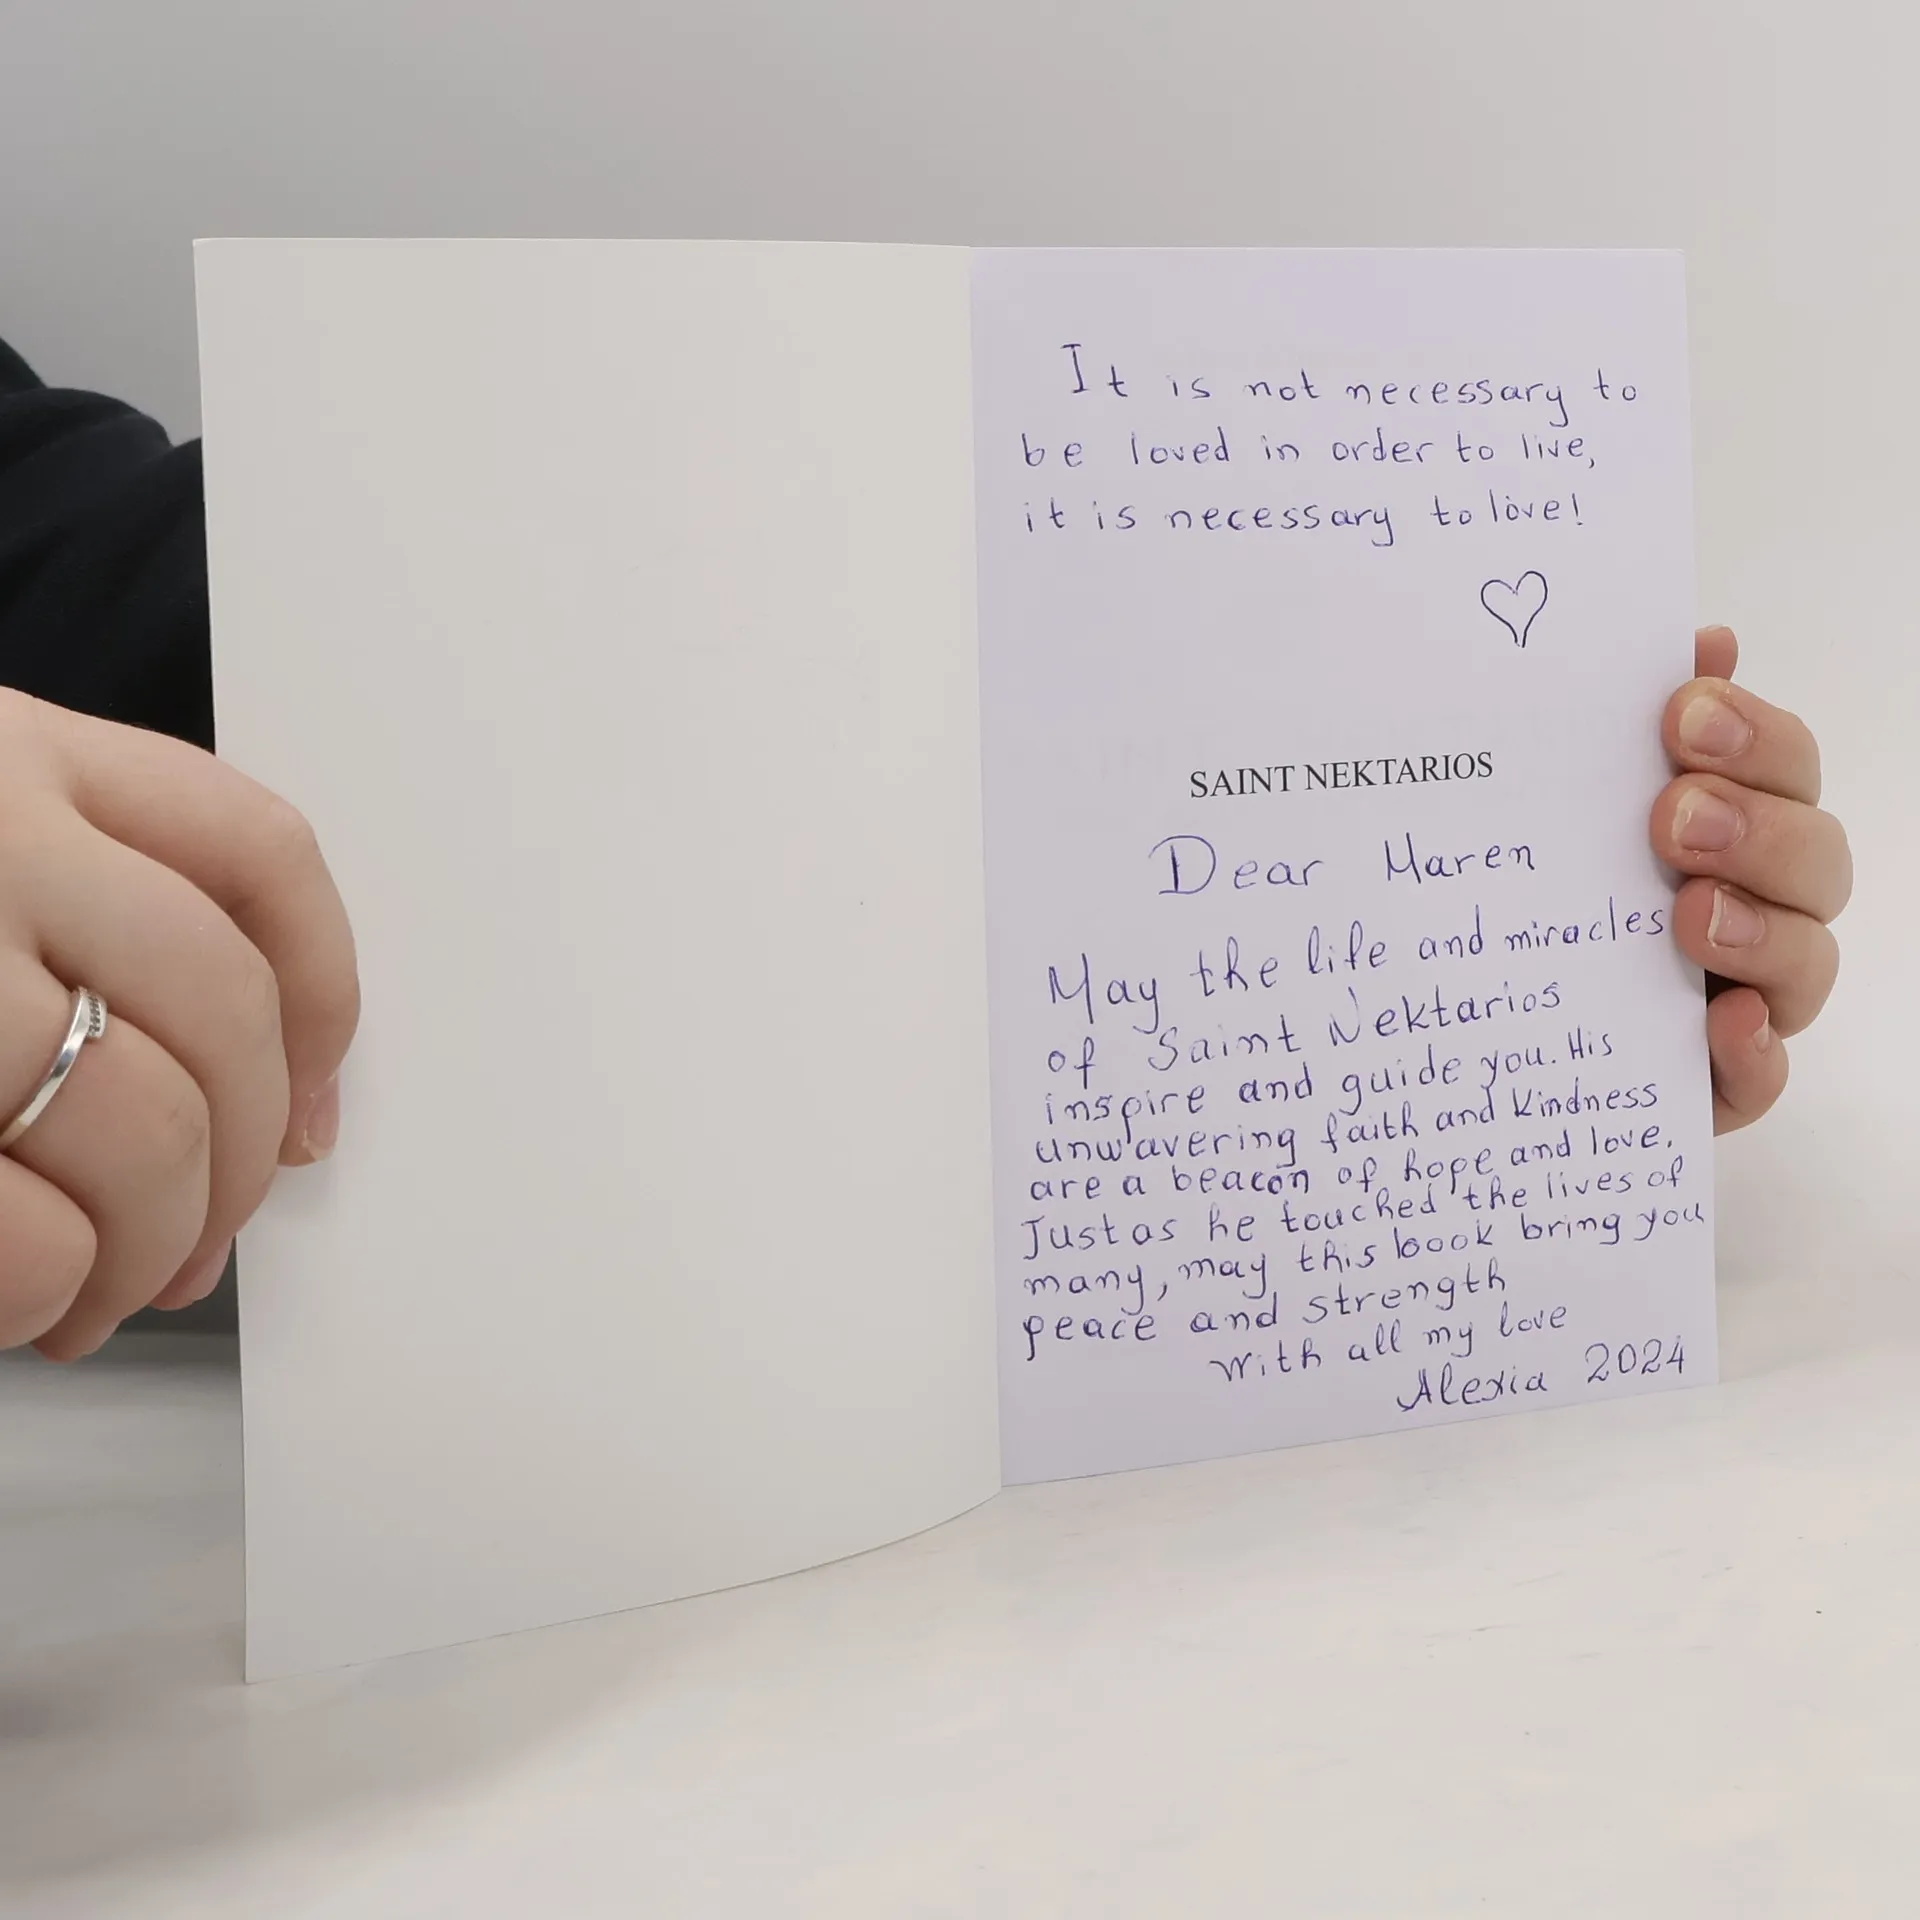 It is not necessary to
be loved in order to live,
it is necessary to love!
SAINT NEKTARIOS
Dear Maren
May the life and miracles
of Saint Nektarios
inspire and guide you. His
unwavering faith and kindness
are a beacon of hope and love.
Just as he touched the lives of
many, may this boook bring you
peace and strength
with all my love
Alexia 2024